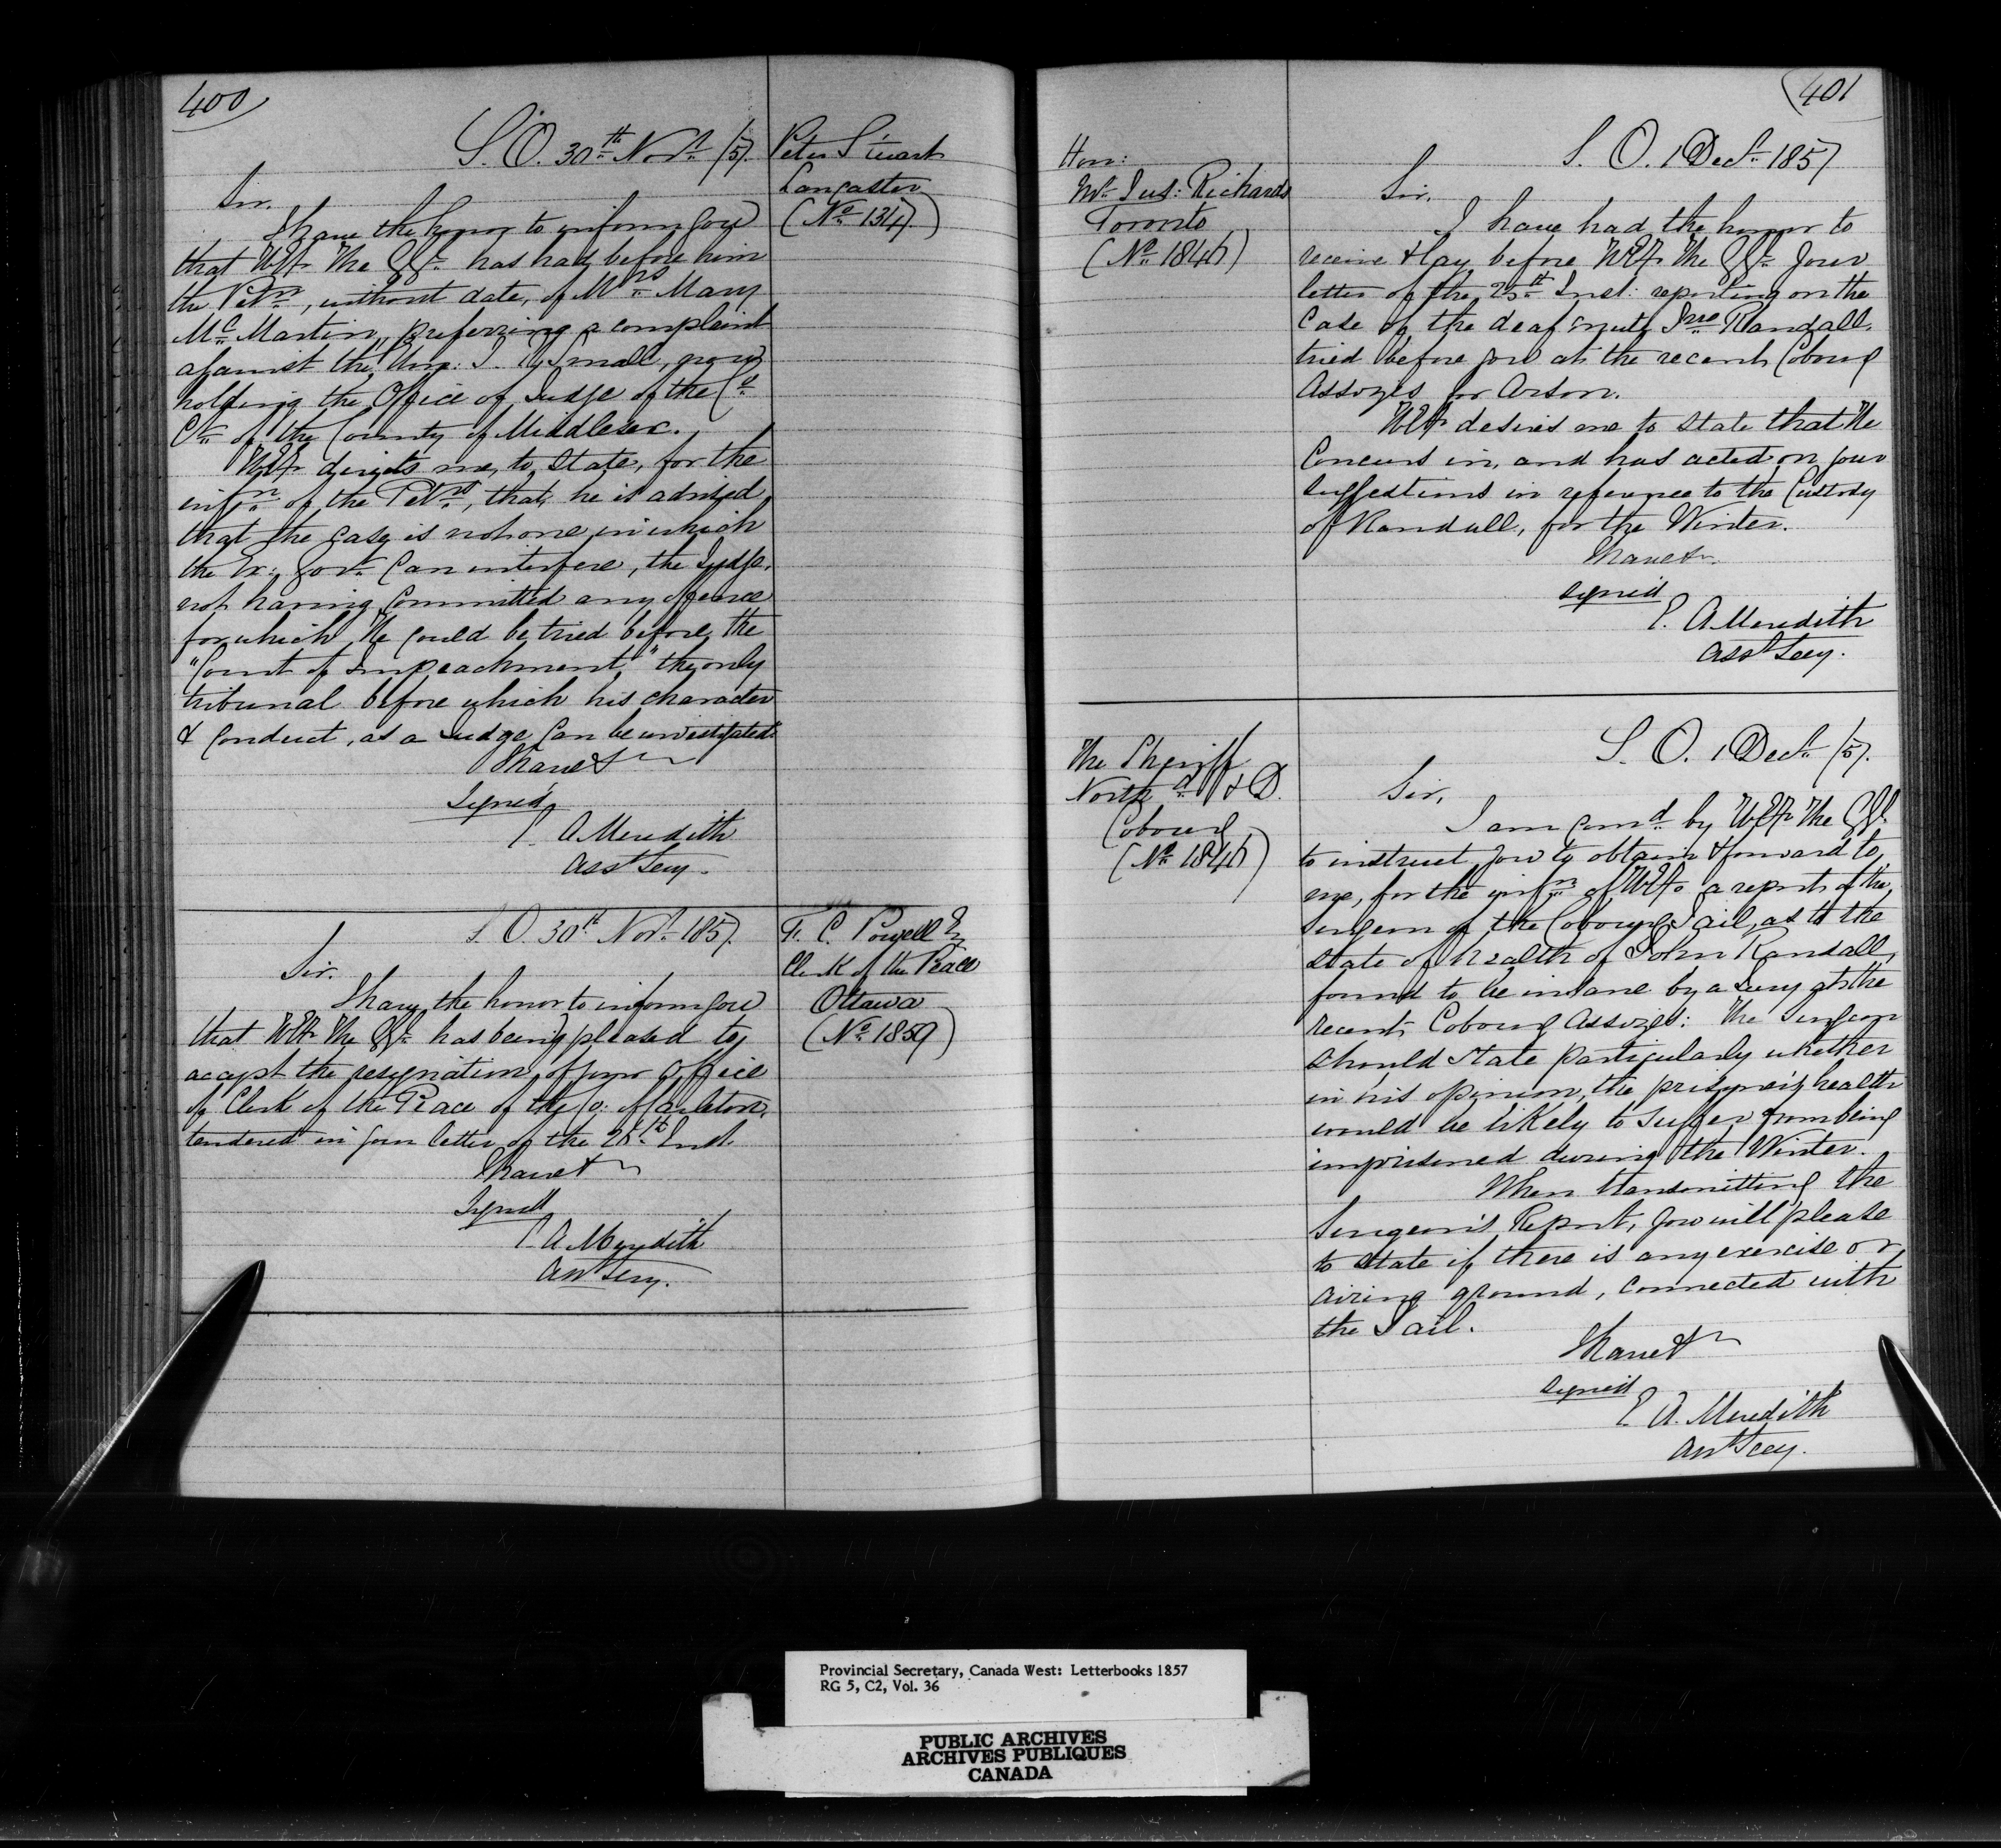 400
S. O. 30th Novr /57.
Peter Stuart
Lancaster
(No 1347)
Sir.
I have the honor to inform you
that H.E. The G.G. has had before him
the Petn, without date, of Mrs Mary
McMartin, preferring a complaint
against the Hon: J. Small, now
holding the Office of Judge of the Co
Ct of the County of Middlesex.
H.E. directs me, to state, for the
infn of the Petnr, that, he is advised
that the case is not one in which
the Ex: Govt can interfere, the Judge,
not having committed any offence
for which He could be tried before, the
"Court of Impeachment" the only
tribunal before which his character
& conduct, as a Judge can be investigated.
I have &
Signed
E. A Meredith
Asst Secy.
S. O. 30th Novr 1857.
F. C. Powell Eq
Clerk of the Peace
Ottawa
(No 1859)
Sir.
I have the honor to inform you
that H.E. The G.G. has being pleased to
accept the resignation, of your Office
of Clerk of the Peace of the Co: of Carleton,
tendered in your letter of the 28th Inst.
I have &
Signed
E. A. Meredith
Asst Secy.
401
S. O. 1 Decr 1857
Hon:
Mr Jus: Richards
Toronto
(No 1846)
Sir.
I have had the honor to
receive & lay before H.E. The G.G. your
letter of the 25th Inst: reporting on the
case of the deaf mute Jno Randall,
tried before you at the recent Cobourg
Assizes for Arson.
H.E. desires me to state that He
concurs in, and has acted on your
suggestions in reference to the Custody
of Randall, for the Winter.
I have &
signed
E. A Meredith
Asst Secy.
S. O. 1 Decr /57.
The Sheriff
Northd & D.
Cobourg
(No 1846)
Sir,
I am comd by H.E. The G.G.
to instruct you to obtain & forward to,
me, for the infn of H.E. a report of the,
Surgeon of the Cobourg Jail, as to the
state of health of John Randall,
found to be insane by a Jury at the
recent Cobourg Assizes: The Surgeon
should state particularly whether
in his opinion, the prisoner's health
would be likely to suffer from being
imprisoned during the Winter.
When transmitting the
Surgeon's Report, you will please
to state if there is any exercise or
airing ground, connected with
the Jail.
I have &
signed
E. A. Meredith
Asst Secy.
Provincial Secretary, Canada West: Letterbooks 1857
RG 5, C2, Vol. 36
PUBLIC ARCHIVES
ARCHIVES PUBLIQUES
CANADA